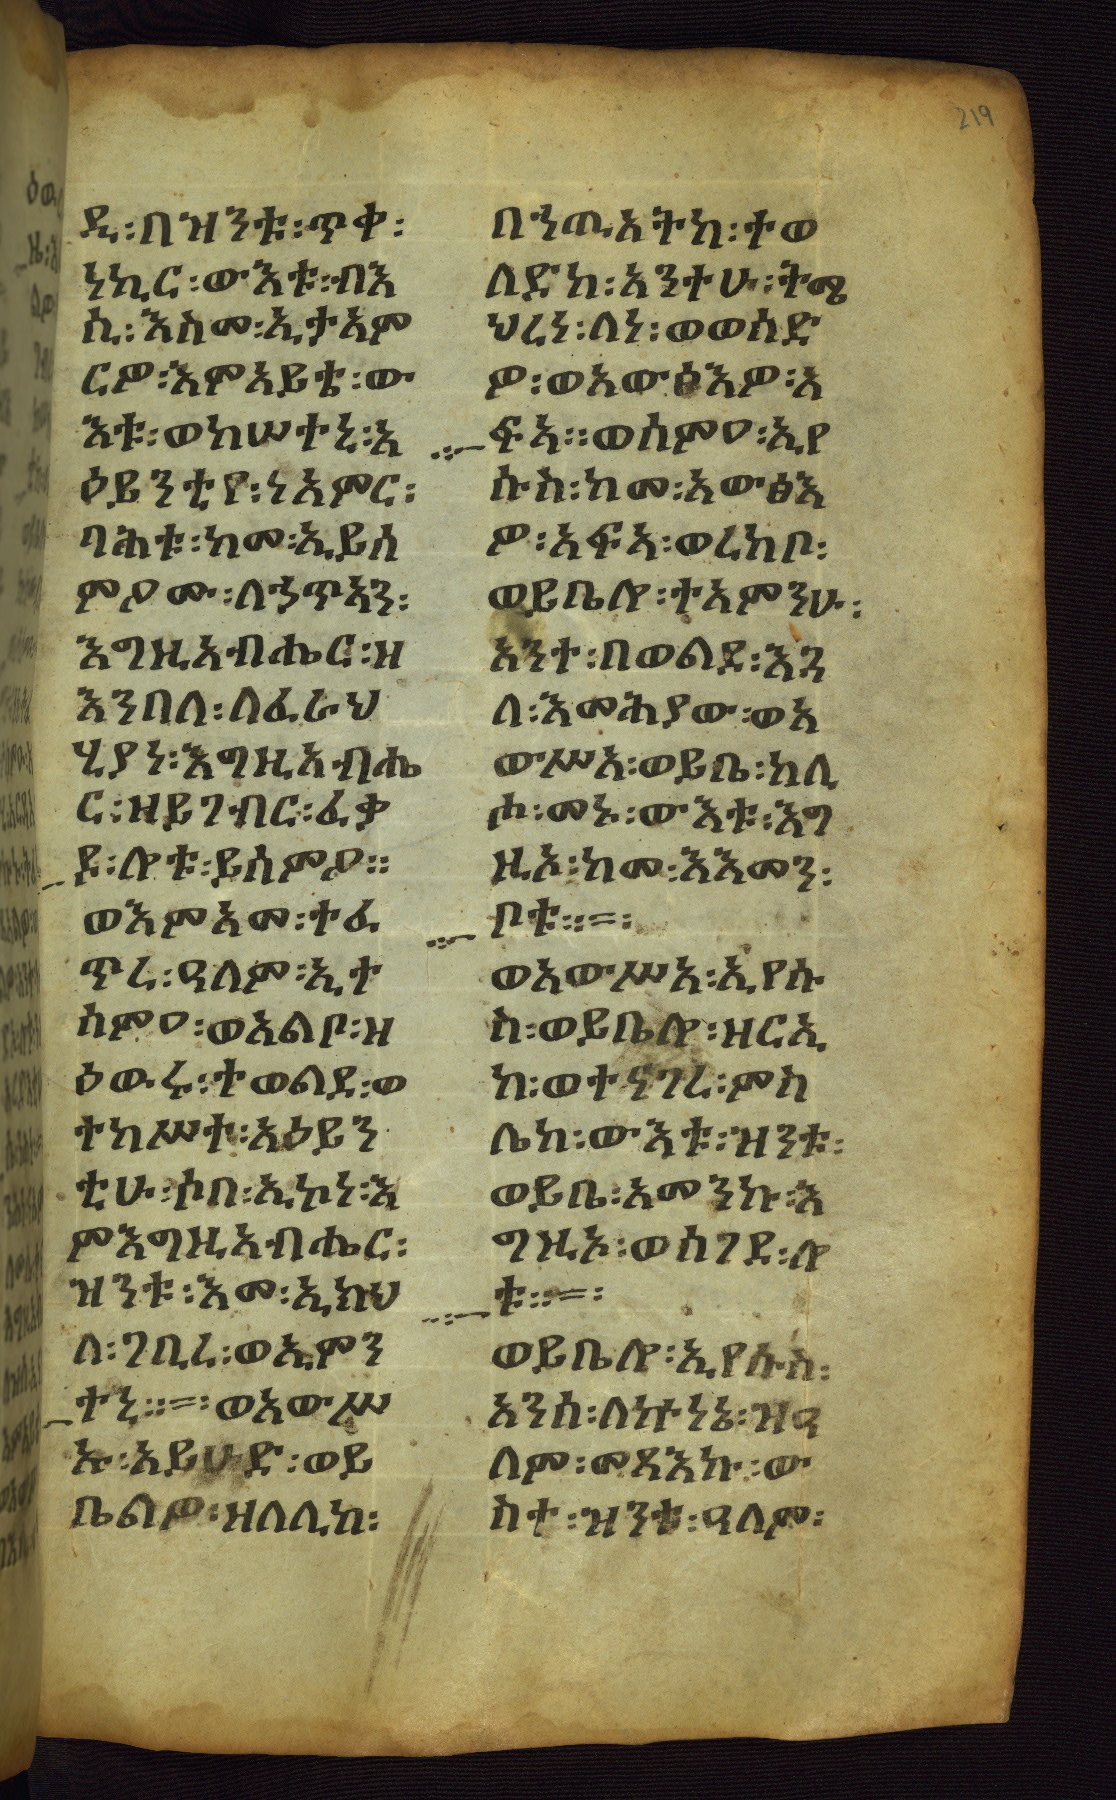 219
ዲ፡በዝንቱ፡ጥቀ፡
ነኪር፡ውእቱ፡ብእ
ሲ፡እስመ፡ኢታአም
ርዎ፡እምአይቴ፡ው
እቱ፡ወከሠተኒ፡አ
ዕይንቲየ፡ነአምር፡
ባሕቱ፡ከመ፡ኢይሰ
ምዖሙ፡ለኃጥኣን፡
እግዚአብሔር፡ዘ
እንበለ፡ለፈራህ
ያነ፡እግዚአብሔ
ር፡ዘይገብር፡ፈቃ
ደ፡ሎቱ፡ይሰምዖ።
ወእምአመ፡ተፈ
ጥረ፡ዓለም፡ኢተ
ሰምዐ፡ወአልቦ፡ዘ
ዕውሩ፡ተወልደ፡ወ
ተከሥተ፡አዕይን
ቲሁ፡ሶበ፡ኢኮነ፡እ
ምእግዚአብሔር፡
ዝንቱ፡እመ፡ኢክህ
ለ፡ገቢረ፡ወኢምን
ተኒ።=፡ወአውሥ
ኡ፡አይሁድ፡ወይ
ቤልዎ፡ዘለሊከ፡
በኃጢአትከ፡ተወ
ለድከ፡አንተሁ፡ትሜ
ህረነ፡ለነ፡ወወሰድ
ዎ፡ወአውፅእዎ፡አ
ፍአ።ወሰምዐ፡ኢየ
ሱስ፡ከመ፡አውፅእ
ዎ፡አፍአ፡ወረከቦ፡
ወይቤሎ፡ተአምንሁ፡
አንተ፡በወልደ፡እጓ
ለ፡እመሕያው፡ወአ
ውሥአ፡ወይቤ፡ከሊ
ሖ፡መኑ፡ውእቱ፡እግ
ዚኦ፡ከመ፡እእመን፡
ቦቱ።=፡
ወአውሥአ፡ኢየሱ
ስ፡ወይቤሎ፡ዘርኢ
ከ፡ወተናገረ፡ምስ
ሌከ፡ውእቱ፡ዝንቱ፡
ወይቤ፡አመንኩ፡እ
ግዚኦ፡ወሰገደ፡ሎ
ቱ።=፡
ወይቤሎ፡ኢየሱስ፡
አንሰ፡ለኵነኔ፡ዝዓ
ለም፡መጻእኩ፡ው
ስተ፡ዝንቱ፡ዓለም፡